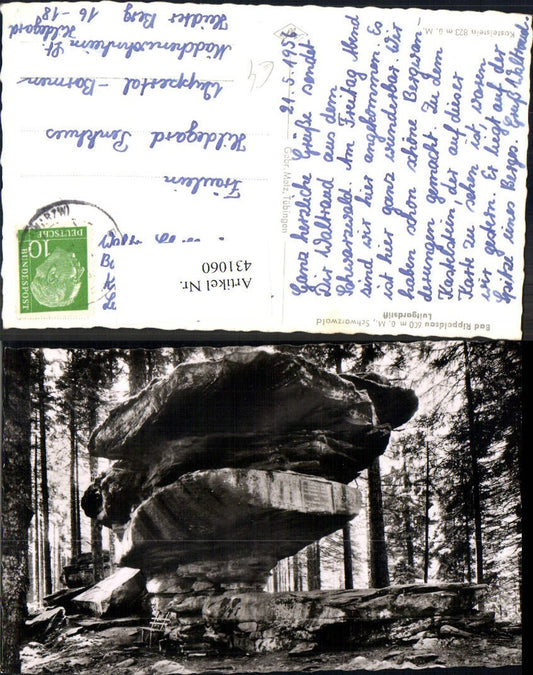 Bad Rippoldsau 600 m ü. M., Schwarzwald
Luitgardstift
Kastelstein 823 m ü. M.
Gebr. Metz, Tübingen
21. 5. 1956
Ganz herzliche Grüße sendet
Dir Waltraud aus dem
Schwarzwald. Am Freitag Abend
sind wir hier angekommen. Es
ist hier ganz wunderbar. Wir
haben schon schöne Bergwan-
derungen gemacht. Zu dem
Kastelstein, der auf dieser
Karte zu sehen ist, waren
wir gestern. Er liegt auf der
Spitze eines Berges. Gruß Waltraud.
Fräulein
Hildegard
Wuppertal-Barmen
Mädchenwohnheim St.
Hildegard
16-18
DEUTSCHE
BUNDESPOST
10
Artikel Nr.
431060